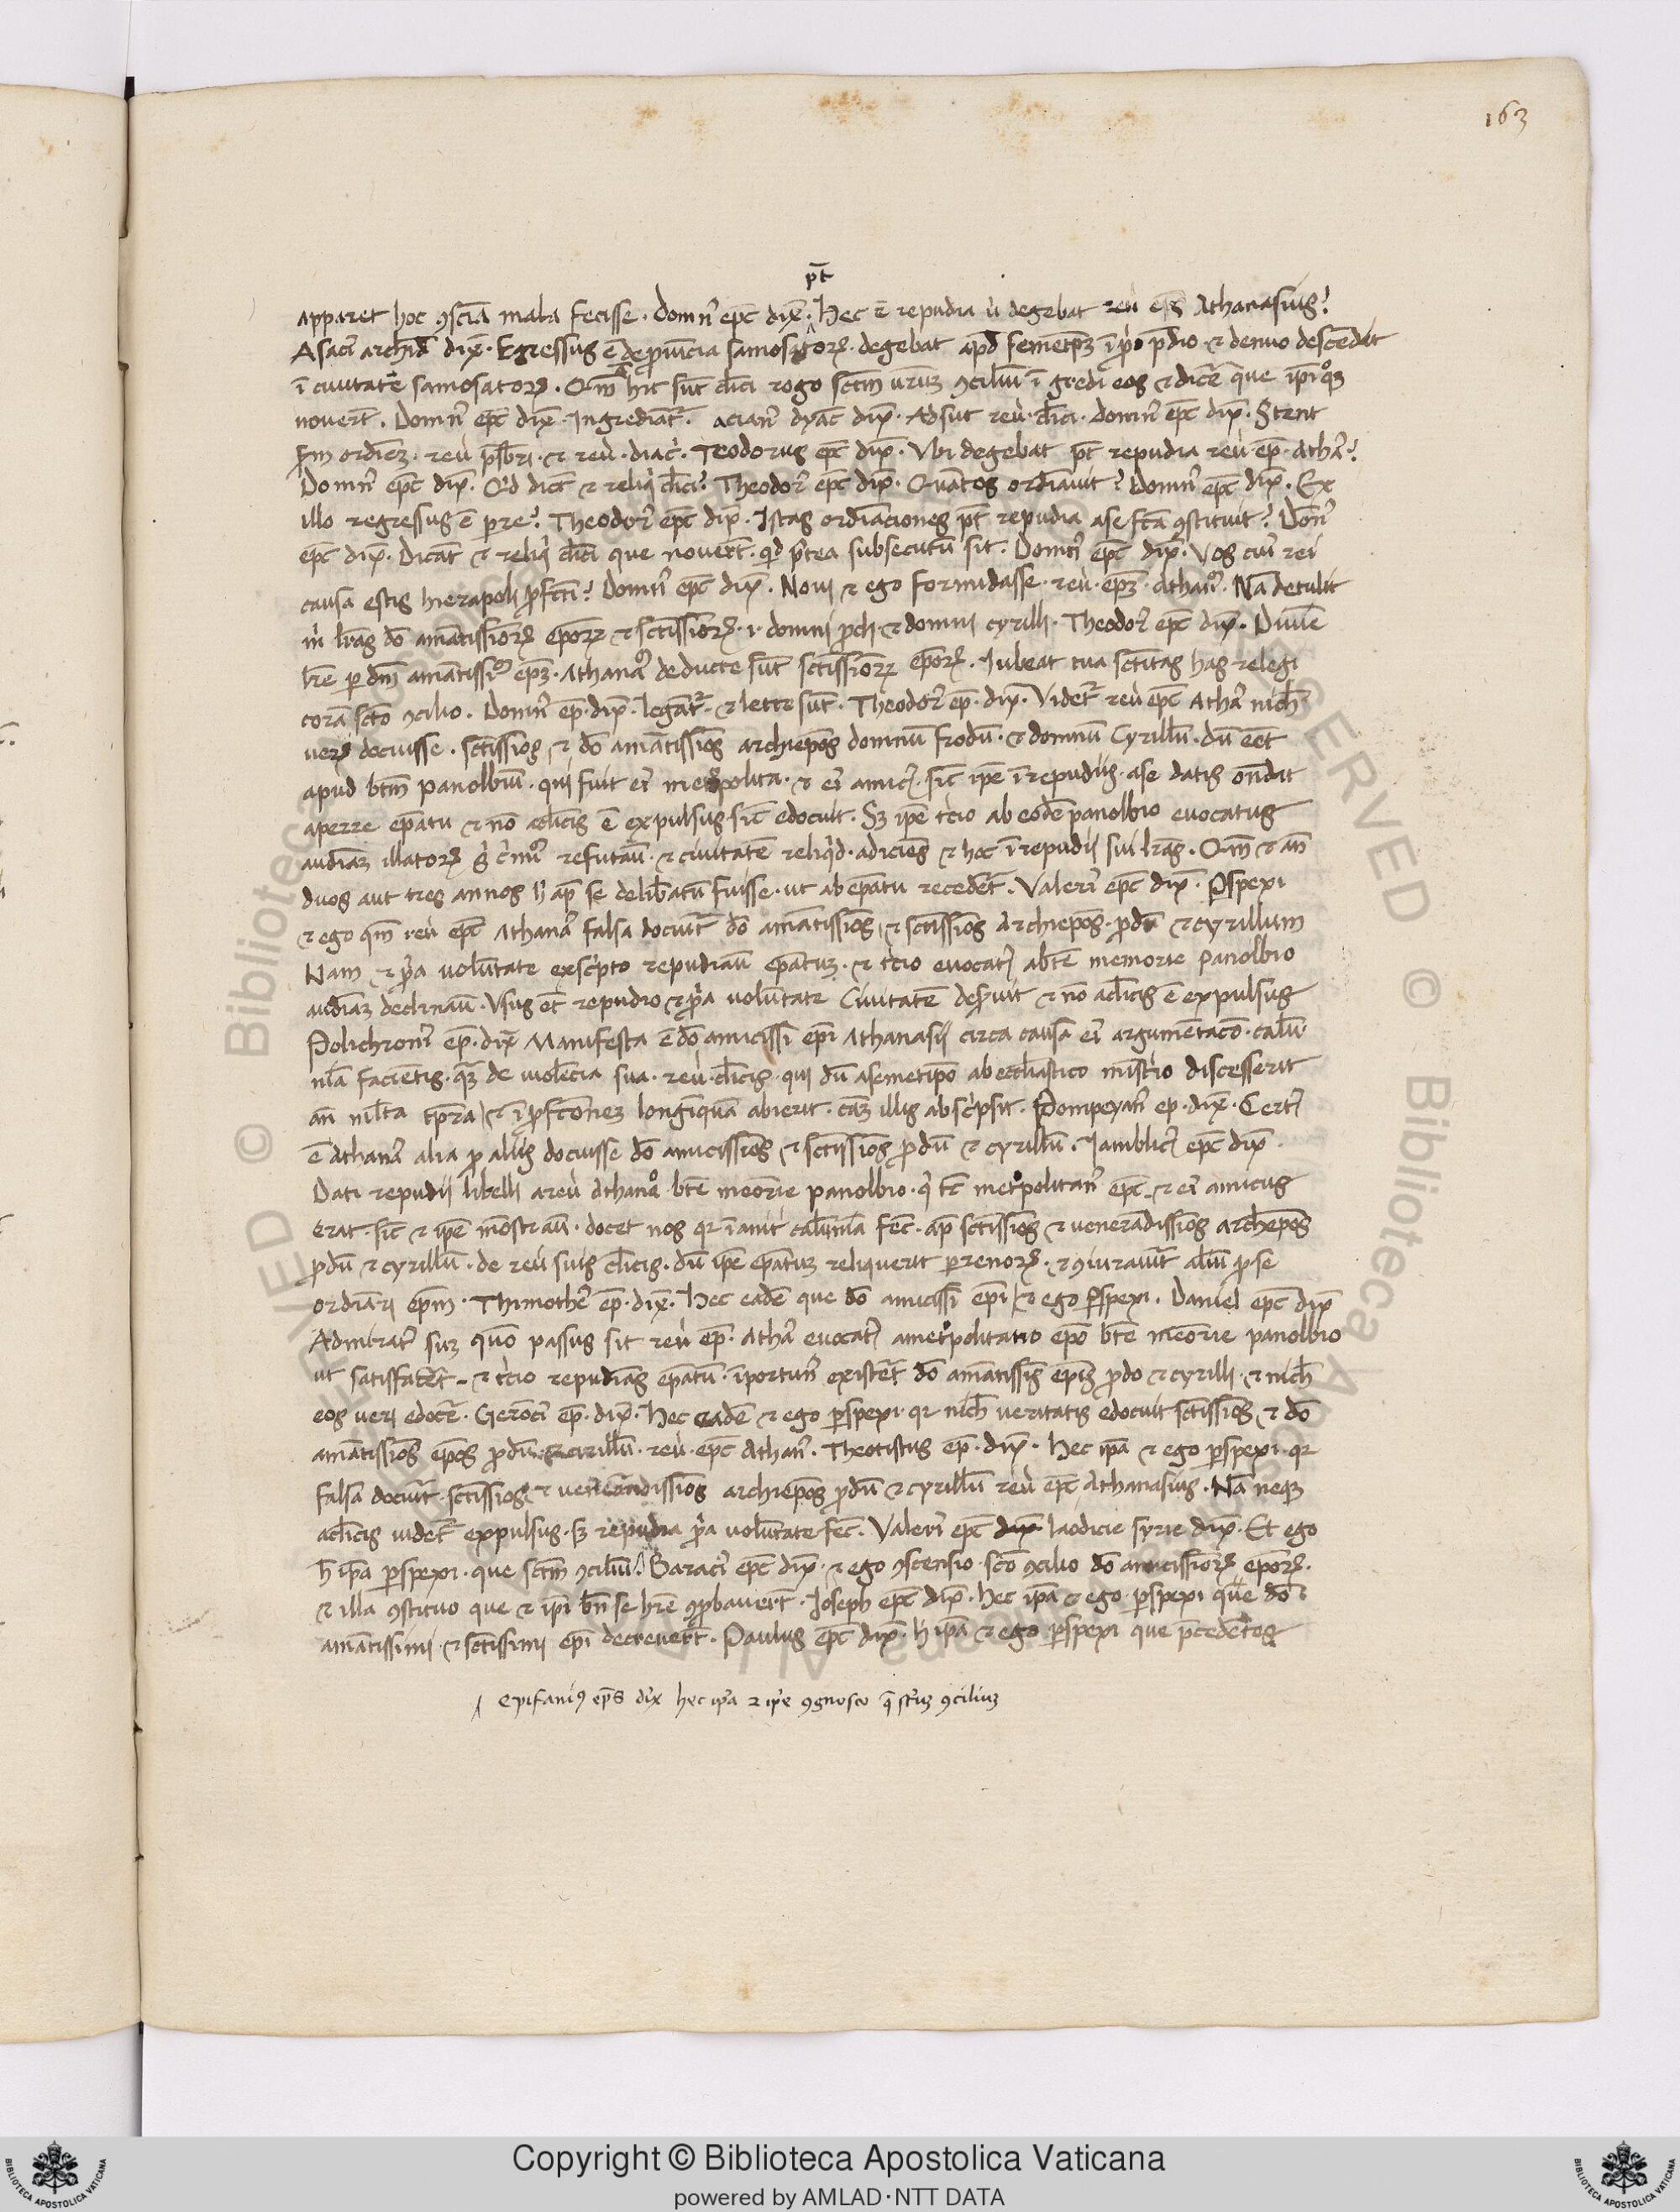 163
pt̄
apparet hoc ꝯsciā mala fecisse. Domn᷒ epc̄ dix̄. Hec ē repudia ù degebat reù ep̄s Athanasius?
Asaci᷒ archid̄ dix̄. Egressus ē de prouīcia samosatorꝝ. degebat apd̄ semetip̄ꝫ ī pͥo p̄dio ⁊ denuo descēdit
ī ciuitatē samosatorꝝ. Qm̄ hic sūt cl̄ici rogo sctm̄ ur̄uꝫ ꝯciliū īgredi eos ⁊ dicē que ip̄i
nouer̄t. Domn᷒ epc̄ dix̄. Ingrediāt᷑. dyac̄ dix̄. Adsūt reù. cl̄ici. domn᷒ epc̄ dix̄. Stent
ordīeꝫ. reù p̄sbri. ⁊ reù. diac̄. Teodorus epc̄ dix̄. Vbi degebat pt̄ repudia reù ep̄. Athā?
Domn᷒ epc̄ dix̄. Qd dict̄ ⁊ reliqͥ cl̄ici? Theodor᷒ epc̄ dix̄. Quātos ordīauit? Domn᷒ epc̄ dix̄. Ex
illo regressus ē? Theodor᷒ epc̄ dix̄. Istas ordīaciones pt̄ repudia a se fc̄a ꝯstituit? Dōn᷒
epc̄ dix̄. Dicāt ⁊ reliqͥ cl̄ici que nouer̄t. qd p᷒tea subsecutū sit. Domn᷒ epc̄ dix̄. Vos cui᷒ rei
causa estis hierapoli ꝓfcti? Domn᷒ epc̄ dix̄. Noui ⁊ ego formidasse. reù. ep̄ꝫ. Athan̄. Nā detulit
m̓ l̄ras dō amātissīorꝝ ep̄orꝝ ⁊ sctīssīorꝝ. i. domni ꝓch. ⁊ domni cyrilli. Theodor᷒ epc̄ dix̄. Diuīe
l̄re ꝑ dm̄ amātissi ep̄ꝫ. Athana deducte sūt sctissīorꝝ ep̄orꝝ. Iubeat tua sctītas has relegi
corā sctō ꝯcilio. Domn᷒ ep̄. dix̄. legāt᷑. ⁊ lecte sūt. Theodor᷒ ep̄. dix̄. Videt᷑ reù epc̄ Athā nich̄
ueꝝ docuisse. sctīssīos, ⁊ dō amātissīos archiep̄os domnū ꝓdū. ⁊ domnū Cyrillū. dū eēt
apud bt̄m panolbiū. qui fuit ei᷒ metͦpolita. ⁊ ei᷒ amic᷒. sic̄ ip̄e ī repudiis. a se datis on̄dit
ep̄atu ⁊ nō a cl̄icis ē expulsus sic̄ edocuit. Sꝫ ip̄e t̓cio ab eodē panolbio euocatus
audīaꝫ illatorꝝ sͥ cͥmīū refutaū. ⁊ ciuitatē reliqͥd. adiciēs ⁊ hoc ī repudij sui l̄ras. Qm̄ ⁊ an̄
duos aut tres annos ap̄ se delib̄atū fuisse. ut ab ep̄atu recedēt. Valeri᷒ epc̄ dix̄. Ꝑspexi
⁊ ego qm̄ reù epc̄ Athanā falsa docuīt dō amātissīos, ⁊ sctīssīos Archiep̄os. ꝓdū ⁊ cyrillum
Nam ⁊ pͥa uolūtate exscͥpto repudiaū ep̄atuꝫ. ⁊ t̓cio euocat᷒ a bt̄e memorie panolbio
audīaꝫ declinaū. Vsus et̄ repudio ⁊ pͥa uolūtate Ciuitatē des̓uit ⁊ nō a cl̄icis ē expulsus
Polichroni᷒ ep̄. dix̄ Manifesta ē dō amicissi ep̄i Athanasij circa causā ei᷒ argumētacō. calū
nīa faciētis. de uiolēcia sua. reù. cl̄icis. qui dū a semetip̄o ab eccl̄iastico misͭio discesserit
an̄ ml̄ta tp̄ra, ⁊ ī ꝓfcōneꝫ longīquā abierit. cāꝫ illis abscͥpsit. Pompeyan᷒ ep. dix̄. Cert᷒
ē Athanā alia ꝓ aliis docuisse dō amicissīos ⁊ sctissīos ꝓdū ⁊ cyrillū. Iamblic᷒ epc̄ dix̄
Dati repudij libelli a reù Athana bt̄e meōrie panolbio. qͥ t̄c metͦpolitan᷒ epc̄ ⁊ ei᷒ amicus
erat. sic̄ ⁊ ip̄e mōstraū. docet nos qꝛ īanit̓ calūnīa fec̄. ap̄ sctīssīos ⁊ ueneradissīos archiep̄os
ꝓdū ⁊ cyrillū. de reù suis cl̄icis. dū ip̄e ep̄atuꝫ reliquerit. ⁊ ꝯiurauīt aliū ꝓ se
ordīari ep̄m. Thimothe᷒ ep̄. dix̄. Hec eadē que dō amicissi ep̄i, ⁊ ego ꝑspexi. Daniel epc̄ dix̄
Admirat᷒ suꝫ quō passus sit reù ep̄. Athā euocat᷒ a metͦpolitano ep̄o bt̄e meōrie panolbio
ut satisfacēt. ⁊ t̓cio repudiās ep̄atū. īportun᷒ existēt dō amātissis ep̄is ꝓdo ⁊ cyrilli. ⁊ nich̄
eos ueri edoce᷑. Gerōci᷒ ep̄. dix̄. Hec eadē ⁊ ego ꝑspexi. qꝛ nich̄ ueritatis edocuit sctīssīos, ⁊ dō
amātissīos ep̄os ꝓdū ⁊ cirillū. reù. epc̄ Athan᷒. Theotistus ep̄. dix̄. Hec ip̄a ⁊ ego ꝑspexi. qꝛ
falsa docuīt. sctissīos, ⁊ uenerādissīos archiep̄os ꝓdū ⁊ cyrillū reù epc̄ Athanasius. Nā neqꝫ
a cl̄icis uidet᷑ expulsus. sꝫ repudia pͥa uolūtate fec̄. Valeri᷒ epc̄ laodicie syrie dix̄. Et ego
h̄ ip̄a ꝑspexi. que sctm̄ ꝯciliū. Baraci᷒ epc̄ dix̄. ⁊ ego ꝯsensio. scō ꝯcilio dō amicissīorꝝ ep̄orꝝ.
⁊ illa ꝯstituo que ⁊ ip̄i bn̄ se hr̄e ꝯꝓbauer̄t. Ioseph epc̄ dix̄. Hec ip̄a ⁊ ego ꝑspexi que dō
amātissimi, ⁊ sctissimi ep̄i decreuer̄t. Paulus epc̄ dix̄. h̄ ip̄a ⁊ ego ꝑspexi que p̄cedētes
Epifaniꝰ ep̄s dix̄ hec ip̄a ⁊ ip̄e ꝯgnosco q̄ sctuꝫ ꝯciliuꝫ
Copyright © Biblioteca Apostolica Vaticana
powered by AMLAD·NTT DATA